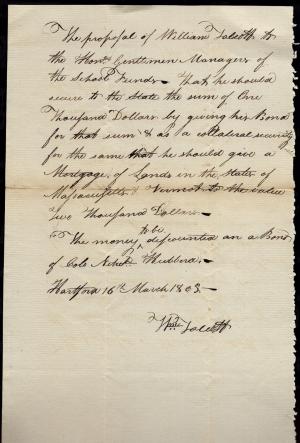 The proposal of William Talcott to
the Honble Gentlemen Managers of
the School Funds — That he should
secure to the State the sum of One
Thousand Dollars by giving his Bond
for that sum & as a collateral security
for the same that he should give a
Mortgage of Lands in the States of
Massachusetts & Vermont to the value
Two Thousand Dollars —
The money to be discounted on a Bond
of Colo Hubbard —
Hartford 16th March 1803 —
Wm Talcott